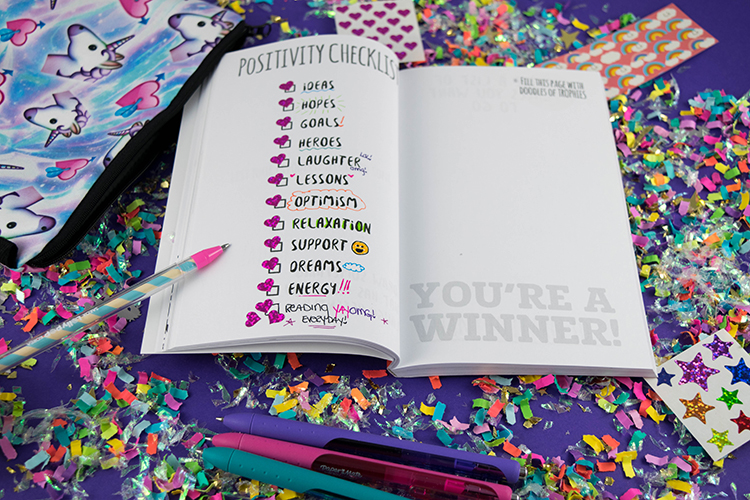 POSITIVITY CHECKLIST
IDEAS
HOPES
GOALS!
HEROES
LAUGHTER
LESSONS
OPTIMISM
RELAXATION
SUPPORT
DREAMS
ENERGY!!!
READING YAY OMG!
EVERYDAY!
* FILL THIS PAGE WITH
DOODLES OF TROPHIES
YOU'RE A
WINNER!
PaperMate